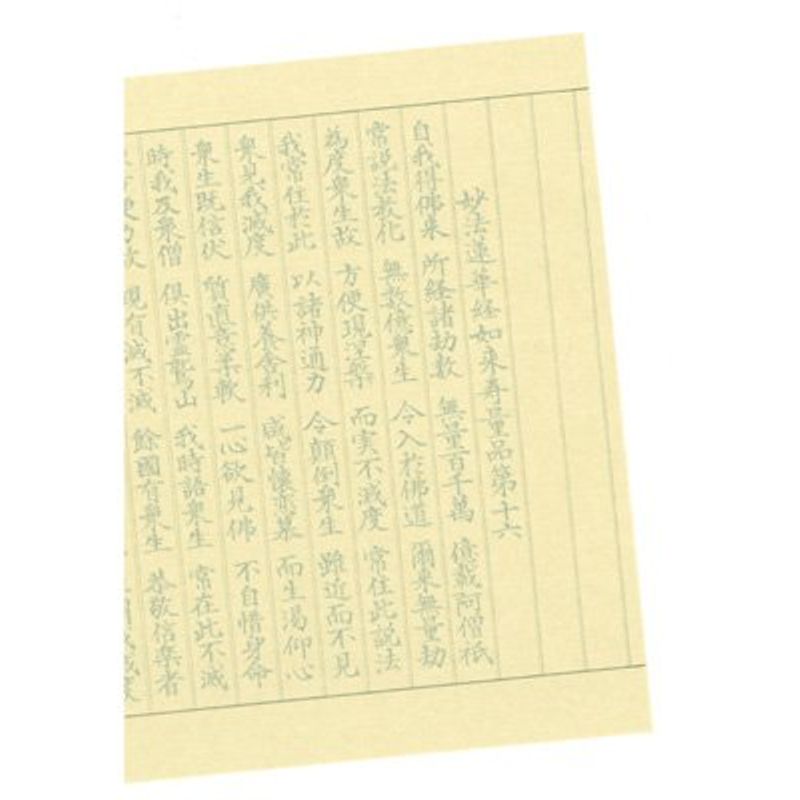 妙法蓮華経如来寿量品第十六
自我得佛来 所経諸劫数 無量百千萬 億載阿僧祇
常説法教化 無数億衆生 令入於佛道 爾来無量劫
為度衆生故 方便現涅槃 而実不滅度 常住此説法
我常住於此 以諸神通力 令顛倒衆生 雖近而不見
衆見我滅度 廣供養舎利 咸皆懐恋慕 而生渇仰心
衆生既信伏 質直意柔軟 一心欲見佛 不自惜身命
時我及衆僧 倶出霊鷲山 我時語衆生 常在此不滅
方便力故 現有滅不滅 餘國有衆生 恭敬信楽者